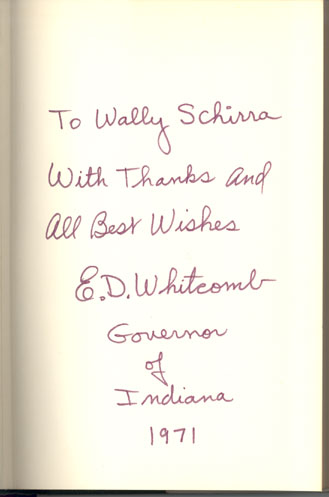 To Wally Schirra
With Thanks And
All Best Wishes
E.D. Whitcomb
Governor
of
Indiana
1971